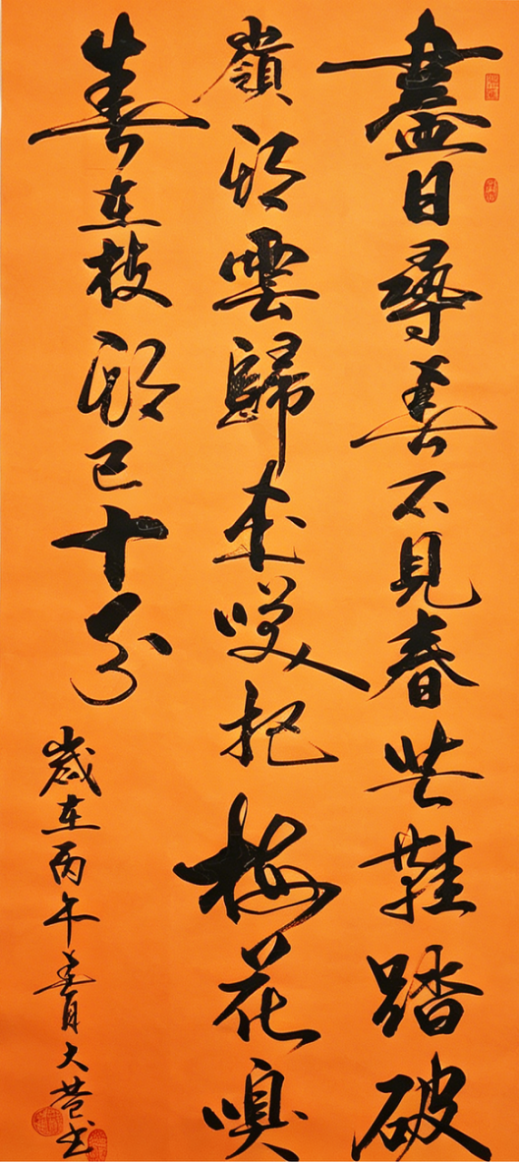 盡日尋春不見春芒鞋踏破
嶺頭雲歸來笑把梅花嗅
春在枝頭已十分
歲在丙午春月大巷书